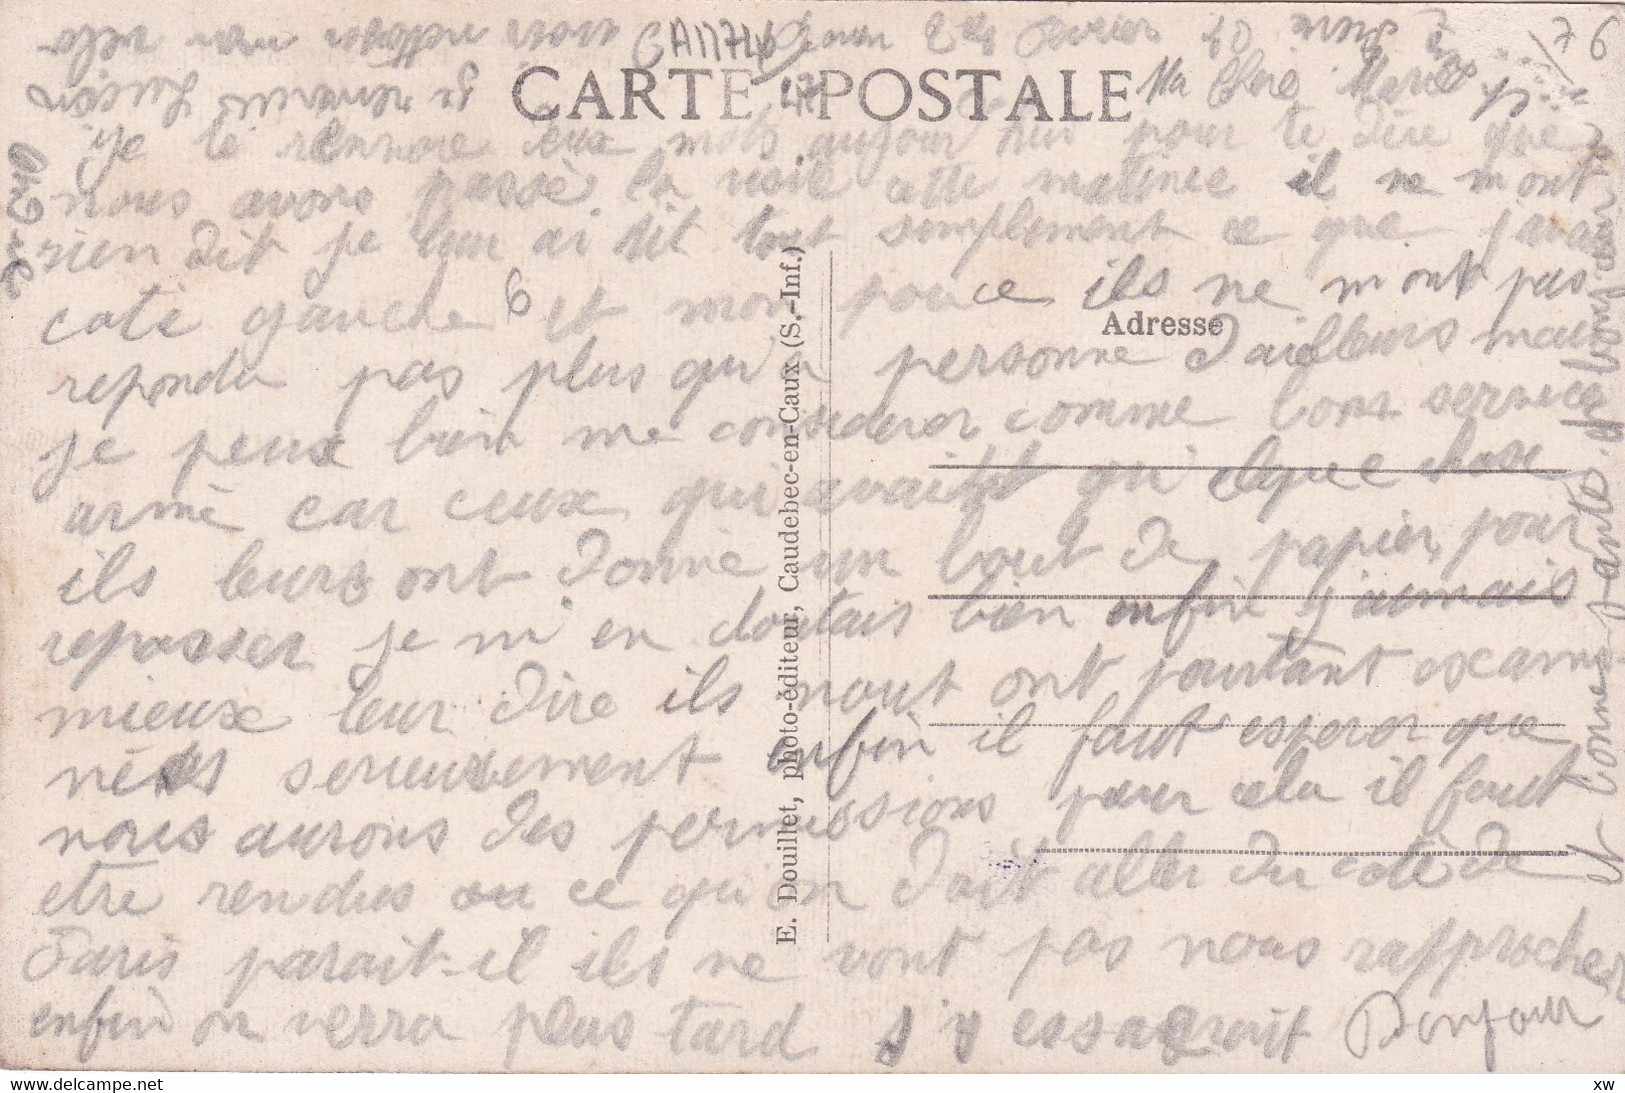 76
CARTE POSTALE
Ma Chere Marcelle
je te renvoie eux mots aujour hui pour te dire que
nous avons passé la visie cette matinée il ne m ont
rien dit je leur ai dit tout simplement ce que j'avais
coté gauche et mon pouce ils ne m ont pas
repondu pas plus qu'a personne d'ailleurs mais
je peux bien me considerer comme bons service
armé car ceux qui avait quelque chose
ils leurs ont donné un bout de papier pour
repasser je m'en doutais bien enfin j'aimais
mieux leur dire ils nout ont pourtant exami-
nés serieusement enfin il faut esperer que
nous aurons des permissions pour cela il faut
etre rendus ou ce qu'on doit aller du coté de
Paris parait-il ils ne vont pas nous rapprocher
enfin on verra plus tard s'y essaerait Bonjour
Adresse
E. Douillet, photo-éditeur, Caudebec-en-Caux (S.-Inf.)